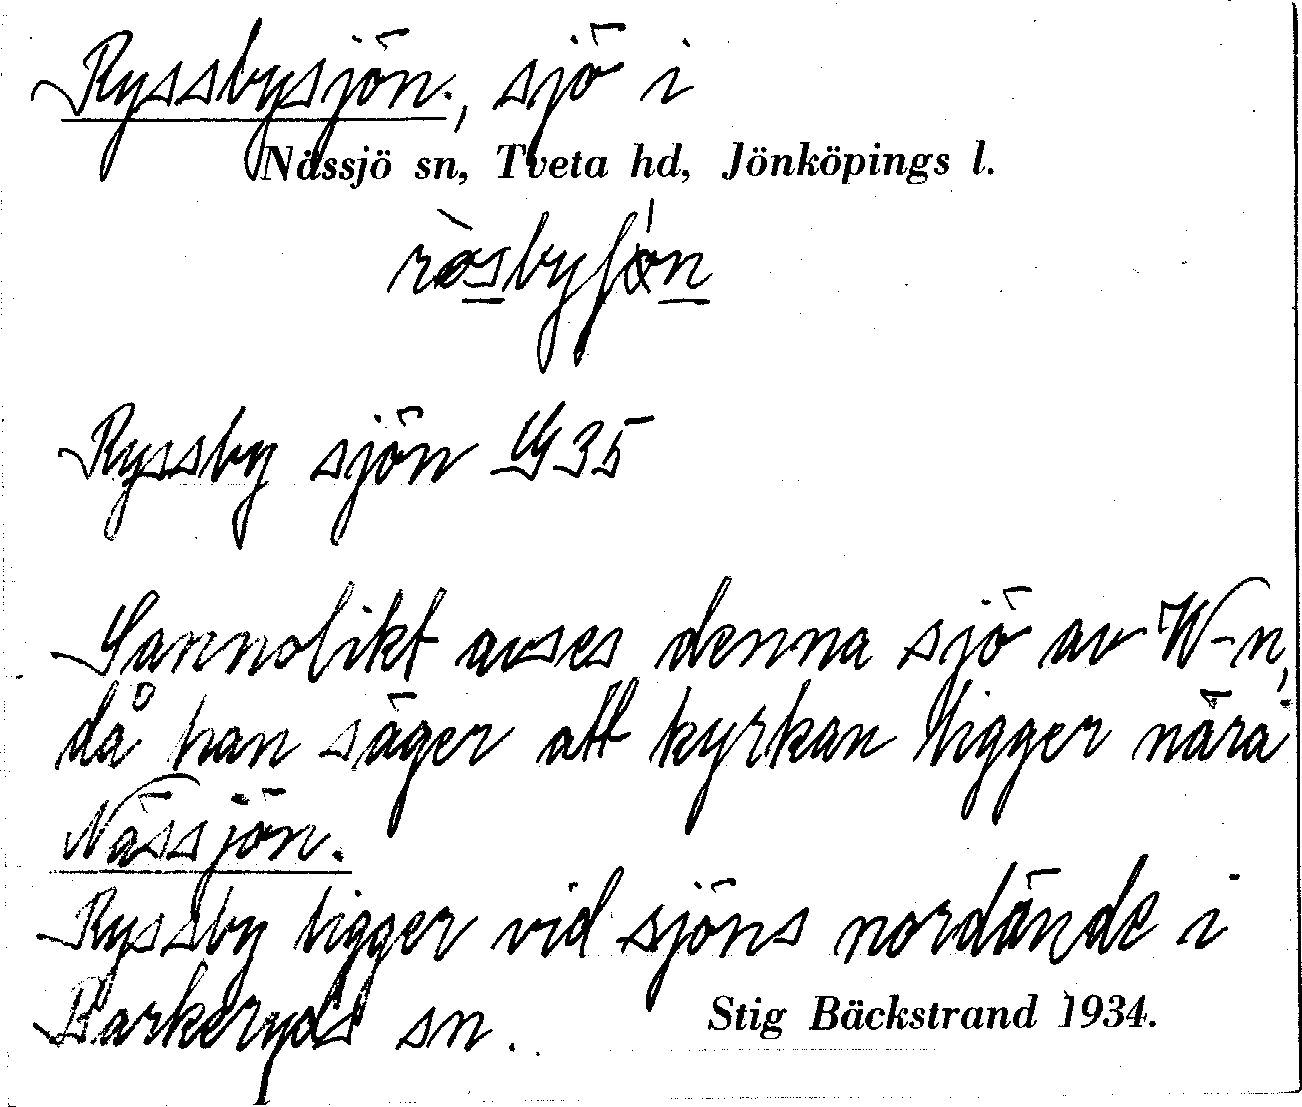 Ryssbysjön., sjö i
Nässjö sn, Tveta hd, Jönköpings l.
Ryssby sjön G35
Sannolikt avses denna sjö av W-n,
då han säger att kyrkan ligger nära
Nässjön.
Ryssby ligger vid sjöns nordände i
Barkeryds sn.
Stig Bäckstrand 1934.